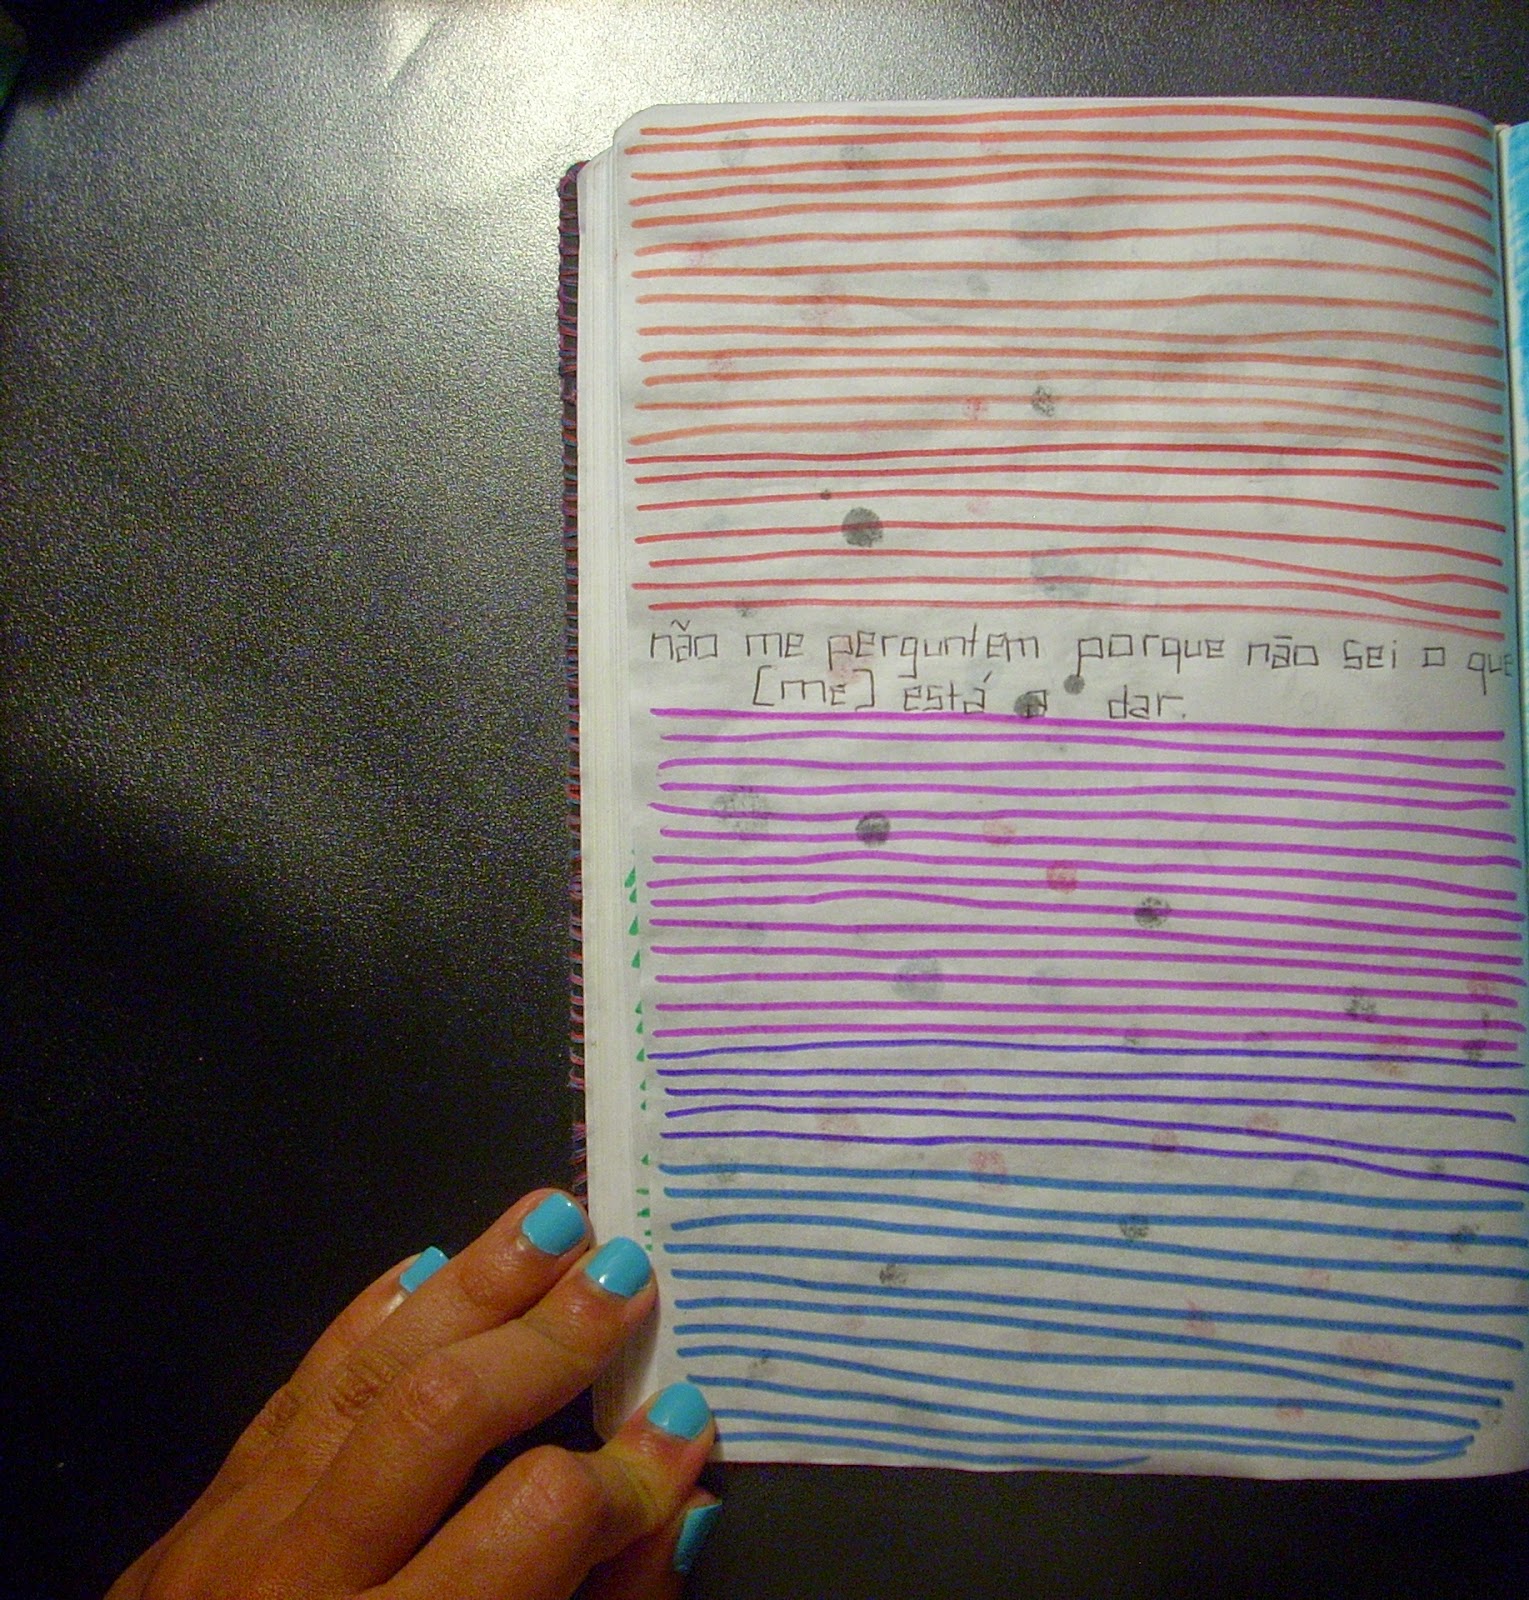 não me perguntem porque não sei o que
[me] está a dar.